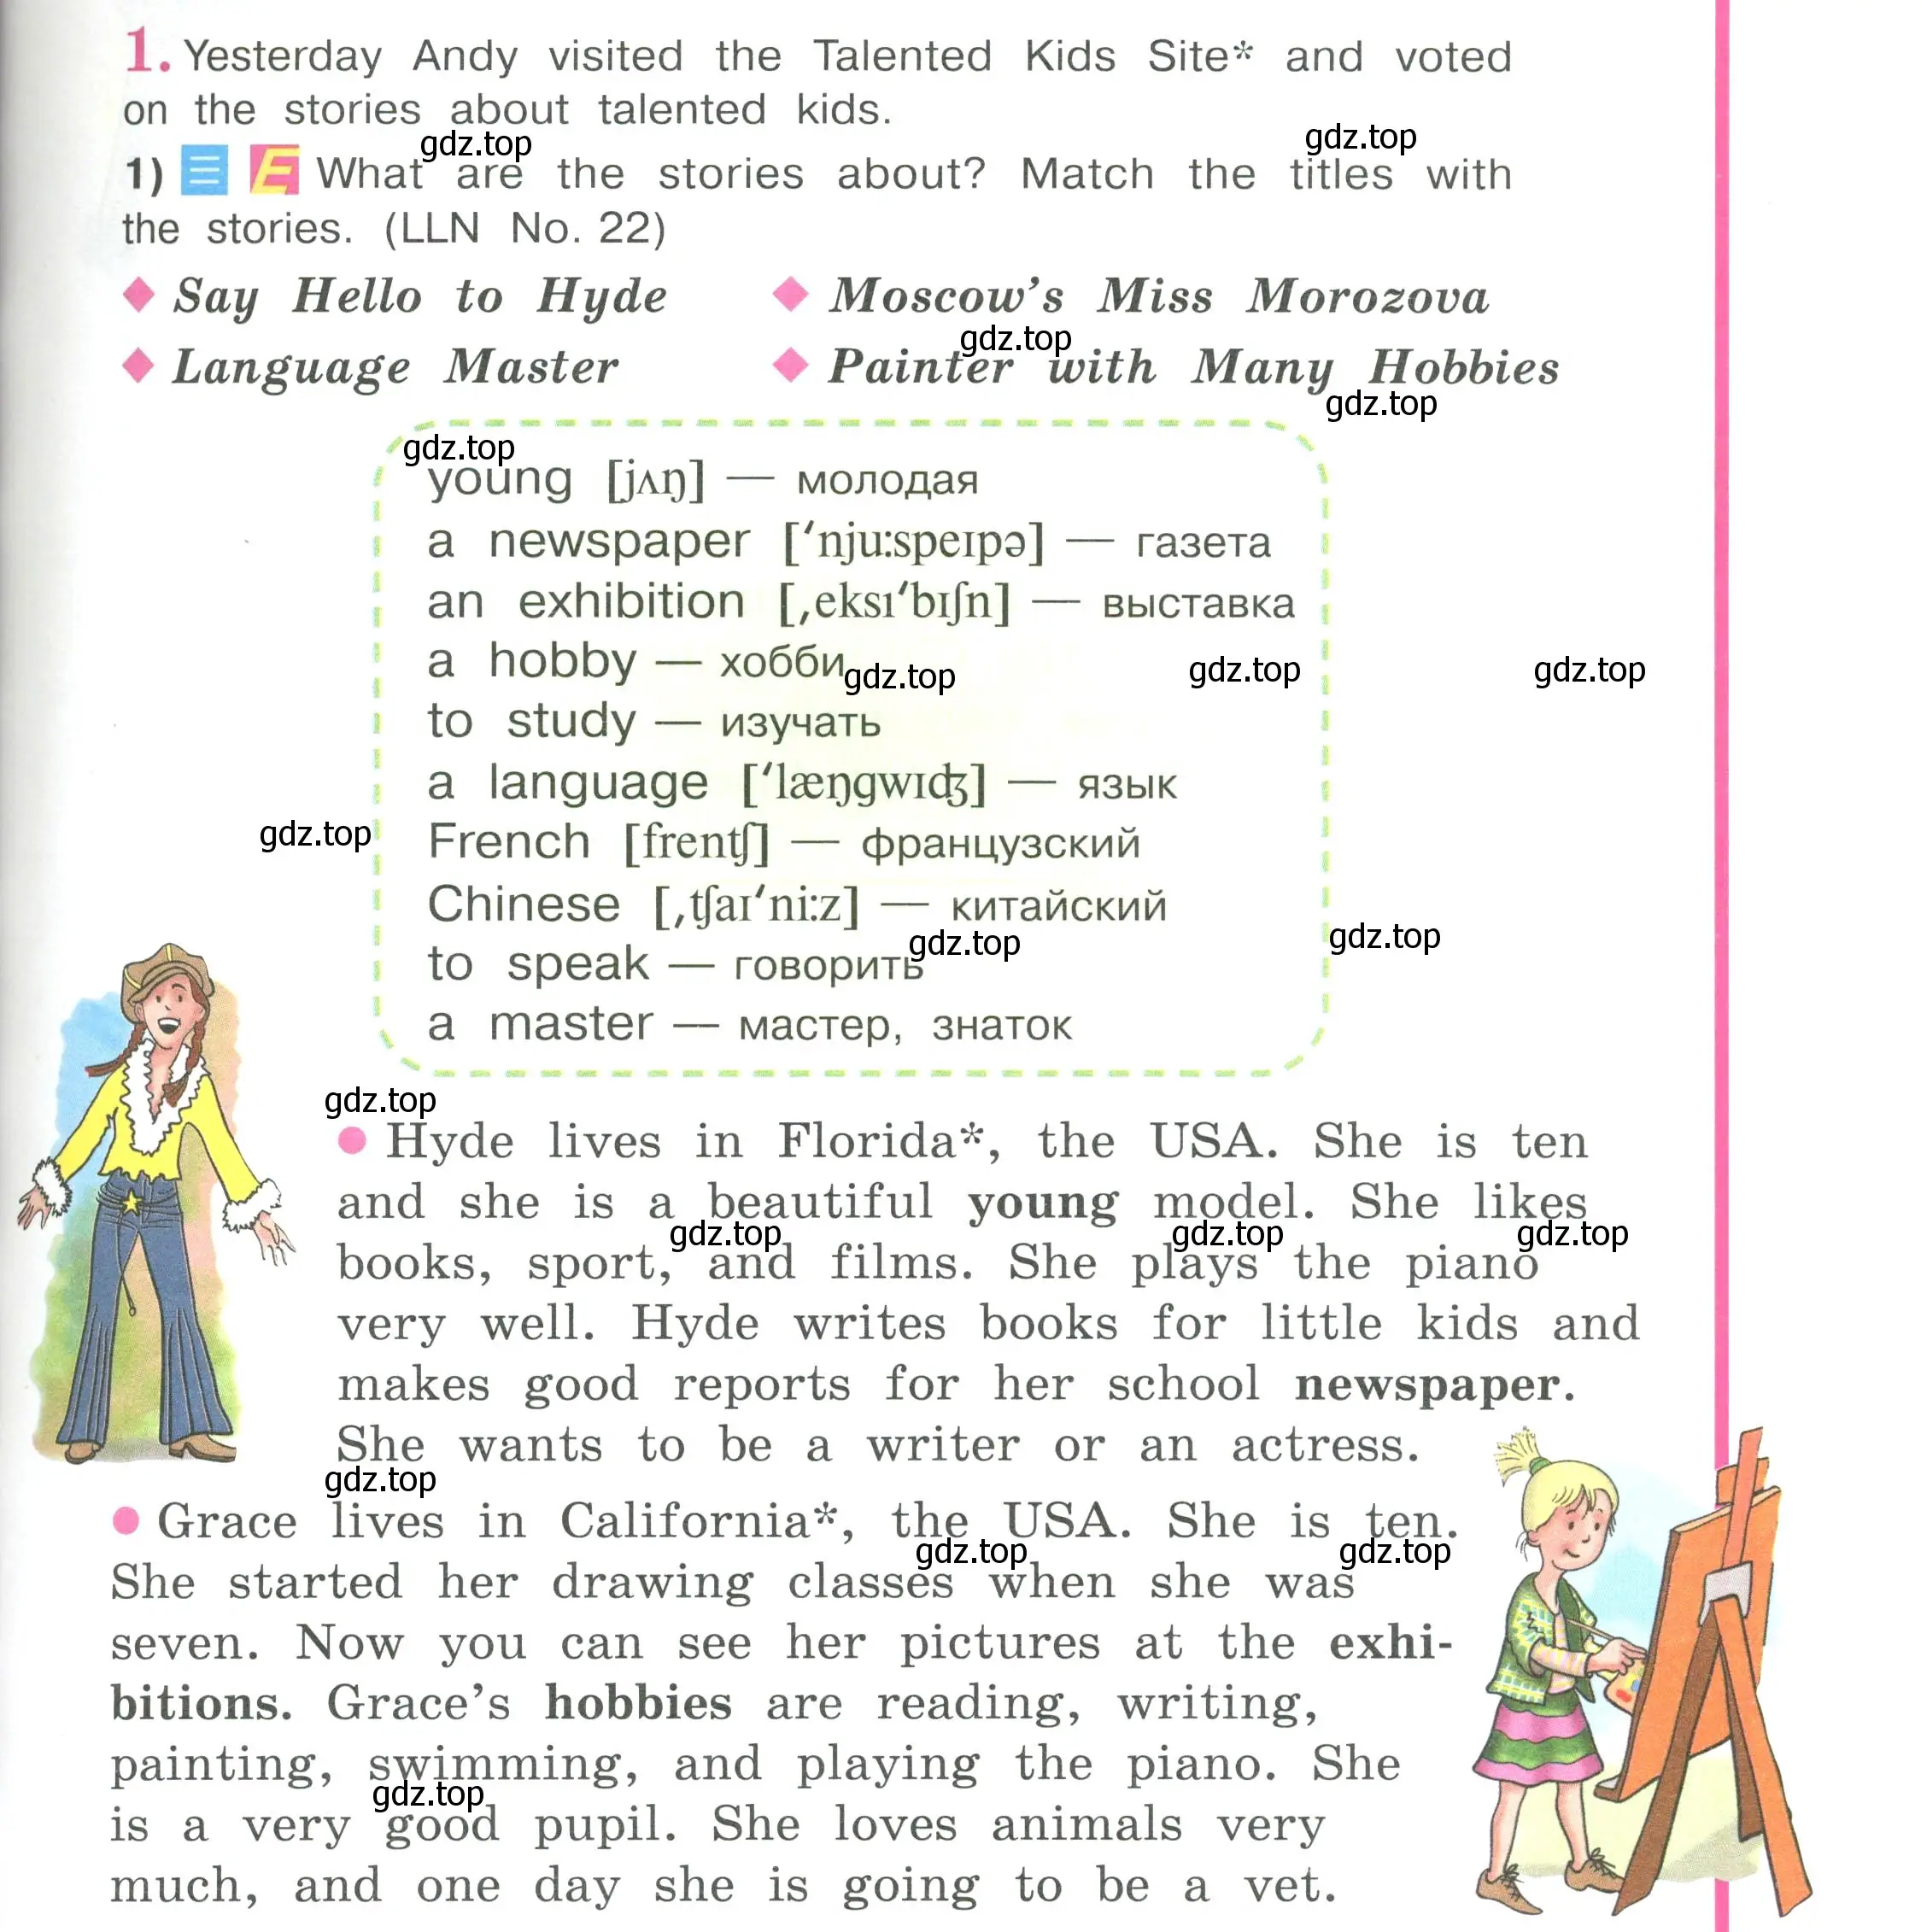 1. Yesterday Andy visited the Talented Kids Site* and voted
on the stories about talented kids.
gdz.top gdz.top
1) E What are the stories about? Match the titles with
the stories. (LLN No. 22)
◆ Say Hello to Hyde ◆ Moscow's Miss Morozova
gdz.top
◆ Language Master ◆ Painter with Many Hobbies
gdz.top
gdz.top
young [jʌŋ] — молодая
a newspaper [ˈnjuːspeɪpə] — газета
an exhibition [ˌeksɪˈbɪʃn] — выставка
a hobby — хобби
gdz.top gdz.top gdz.top
to study — изучать
a language [ˈlæŋgwɪʤ] — язык
gdz.top
French [frenʧ] — французский
Chinese [ˌʧaɪˈniːz] — китайский
gdz.top gdz.top
to speak — говорить
a master — мастер, знаток
gdz.top
● Hyde lives in Florida*, the USA. She is ten
and she is a beautiful young model. She likes
gdz.top gdz.top gdz.top
books, sport, and films. She plays the piano
very well. Hyde writes books for little kids and
makes good reports for her school newspaper.
She wants to be a writer or an actress.
gdz.top
● Grace lives in California*, the USA. She is ten.
gdz.top gdz.top
She started her drawing classes when she was
seven. Now you can see her pictures at the exhi-
bitions. Grace's hobbies are reading, writing,
painting, swimming, and playing the piano. She
gdz.top
is a very good pupil. She loves animals very
much, and one day she is going to be a vet.